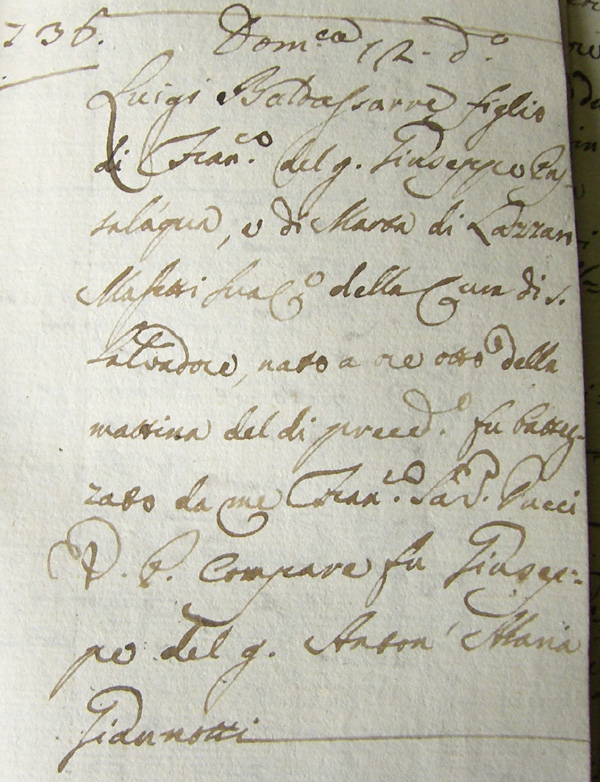 236.
Dom.ca 12. d.o
Luigi Baldassarre figlio
di Fran.co del q. Giuseppe
e di Marta di Lazzaro
Masetti sua C.e della Cura di S.
Salvadore, nato a ore otto della
mattina del di preced.e fu battez-
zato da me Fran.co Sav. Pucci
P. B. Compare fu Giusep-
pe del q. Anton Maria
Giannotti